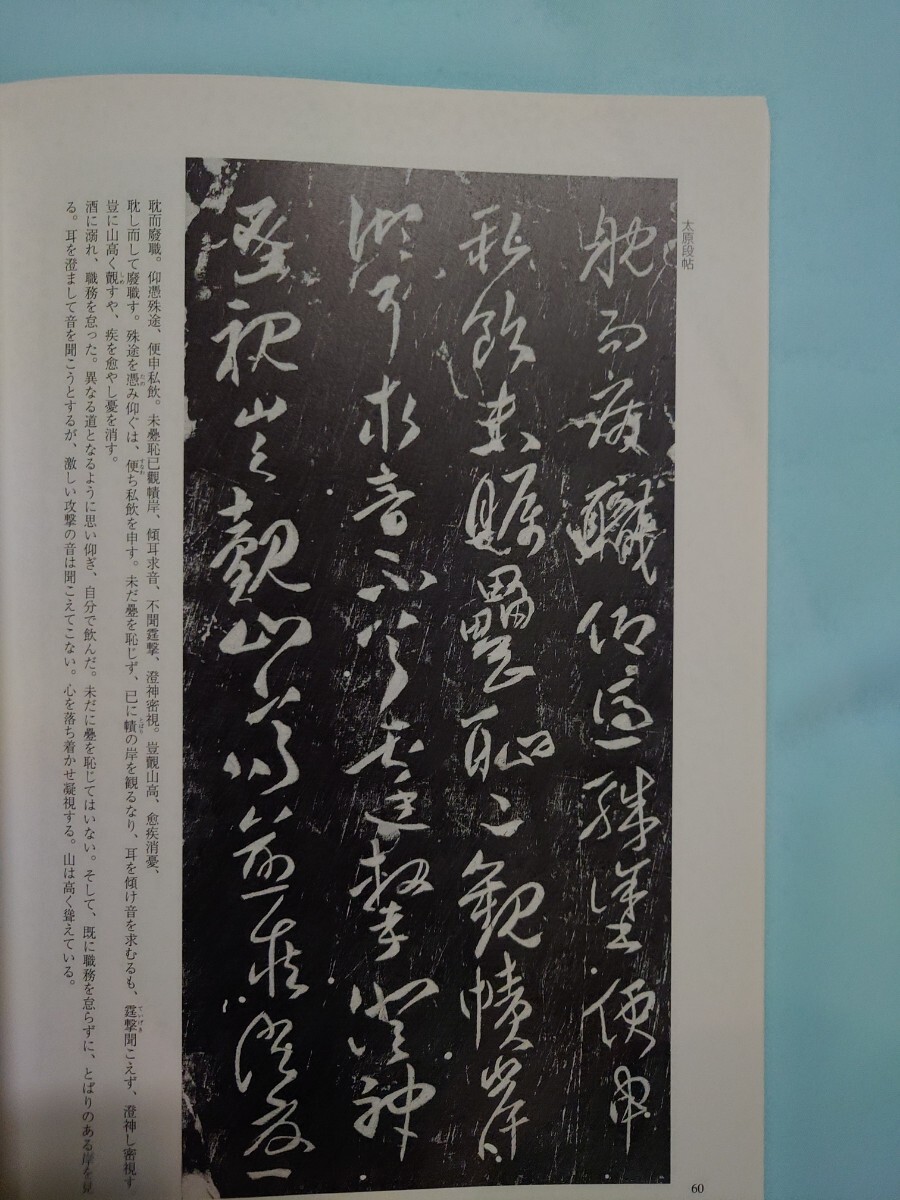 太原段帖
耽而廢職仰憑殊塗便申
私飲未矚罍恥已觀幘岸
傾耳求音不聞霆擊澄神
密視豈觀山高愈疾消憂
耽而廢職。仰憑殊途、便申私飲。未罍恥已觀幘岸、傾耳求音、不聞霆撃、澄神密視。豈觀山高、愈疾消憂、
耽し而して廢職す。殊途を憑み仰ぐは、便ち私飲を申す。未だ罍を恥じず、已に幘の岸を観るなり、耳を傾け音を求むるも、霆撃聞こえず、澄神し密視す
豈に山高く觀すや、疾を愈やし憂を消す。
酒に溺れ、職務を怠った。異なる道となるように思い仰ぎ、自分で飲んだ。未だに罍を恥じてはいない。そして、既に職務を怠らずに、とばりのある岸を見
る。耳を澄まして音を聞こうとするが、激しい攻撃の音は聞こえてこない。心を落ち着かせ凝視する。山は高く聳えている。
60